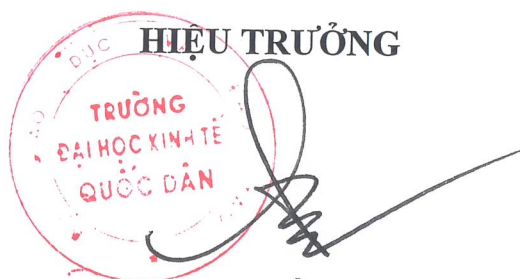 HIỆU TRƯỞNG
DỤC
TRƯỜNG
ĐẠI HỌC KINH TẾ
QUỐC DÂN